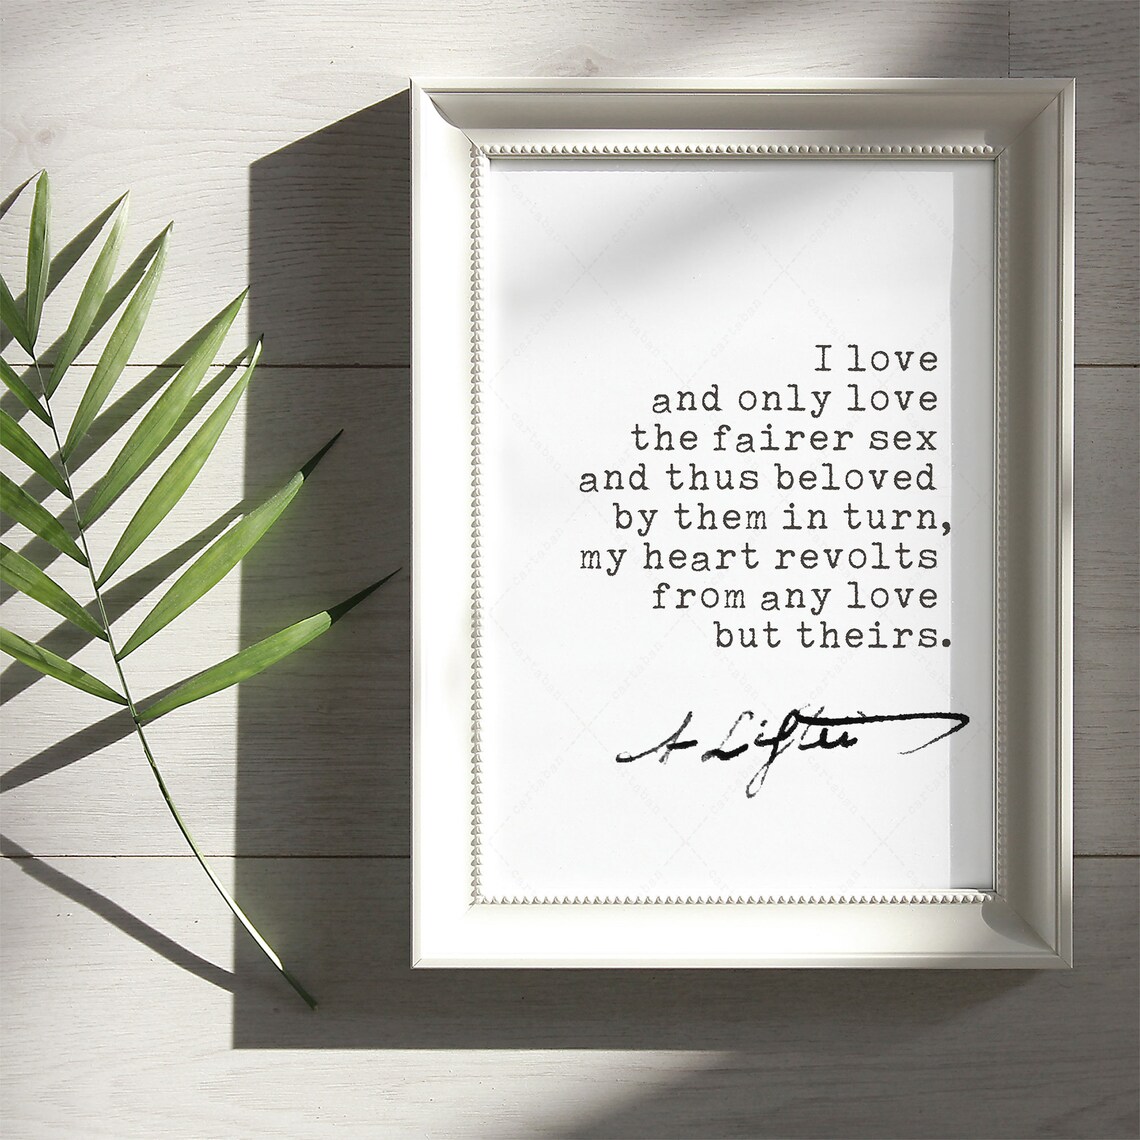 I love
and only love
the fairer sex
and thus beloved
by them in turn,
my heart revolts
from any love
but theirs.
A Lister